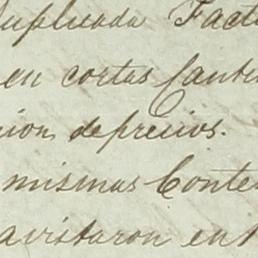 duplicada Fact
en cortas Cant
nion de precios.
mismas Conte
avistaron en